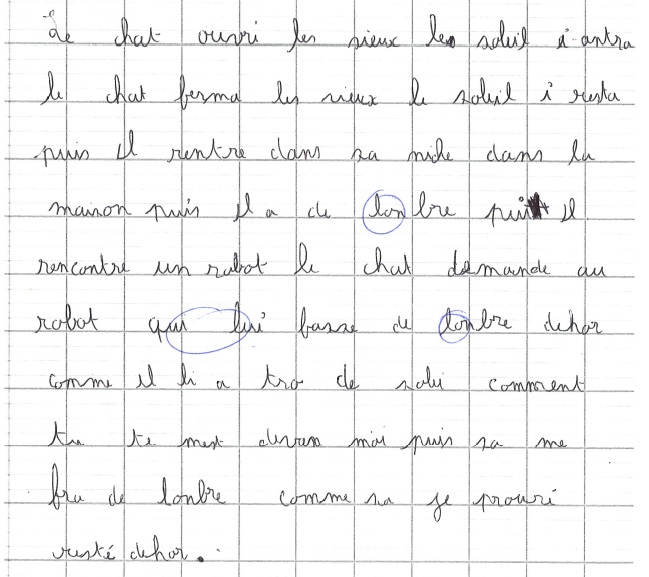 Le chat ouvri les sieux le soleil i antra
le chat ferma les sieux le soleil i resta
puis il rentre dans sa niche dans la
maison puis il a de lonbre puit il
rencontre un robot le chat demande au
robot qui lui fasse de lonbre dehor
comme il li a tro de solei comment
tu te mest devan moi puis sa me
fra de lonbre comme sa je prouri
resté dehor.